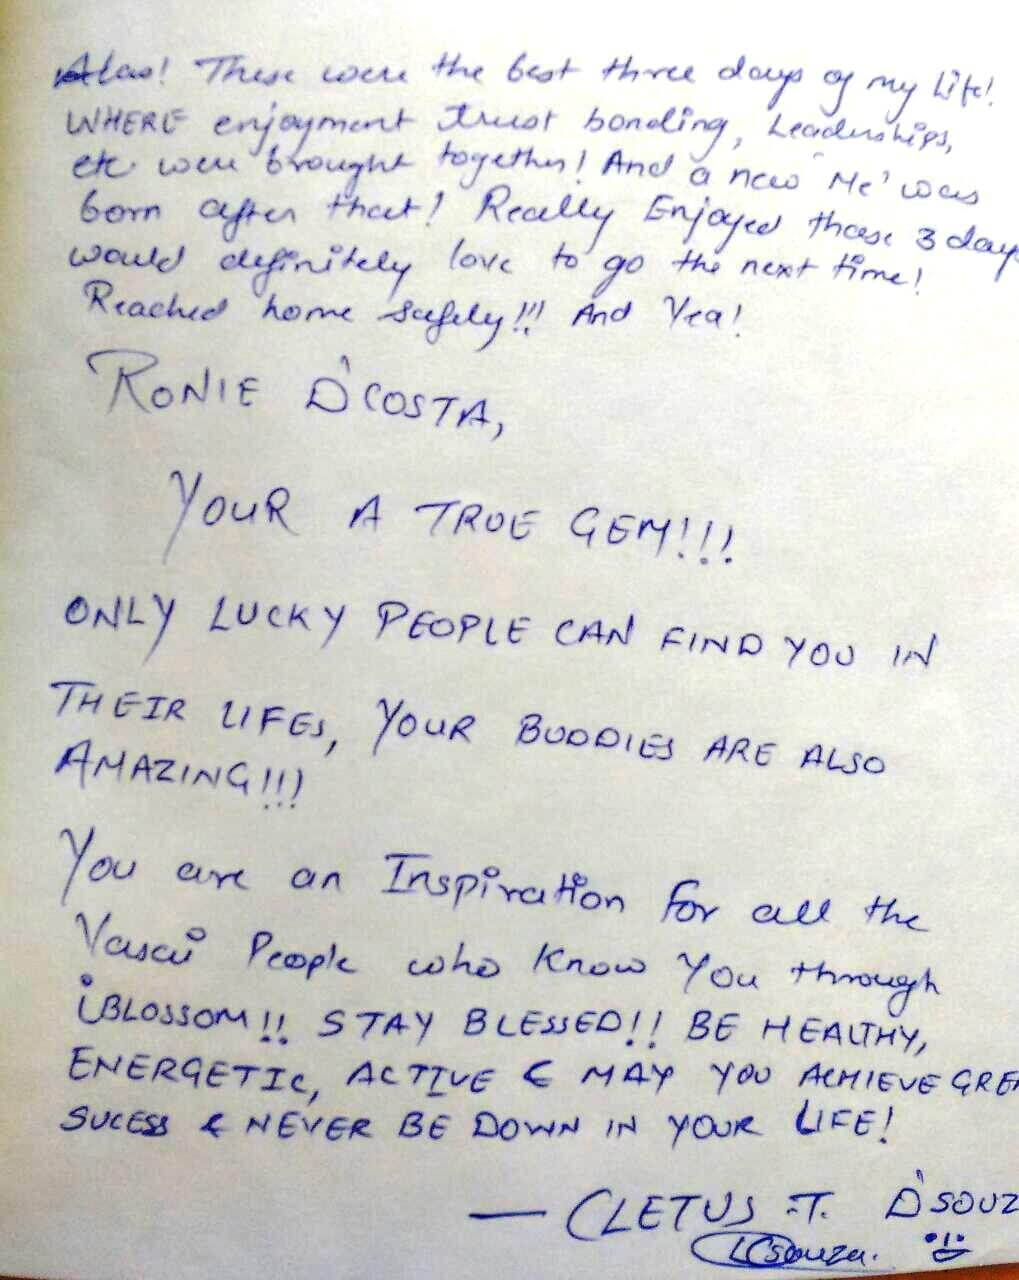 Alas! These were the best three days of my Life!
WHERE enjoyment trust bonding, Leaderships,
etc were brought together! And a new 'Me' was
born after that! Really Enjoyed those 3 days
would definitely love to go the next time!
Reached home safely!!! And Yea!
RONIE D'COSTA,
YOUR A TRUE GEM!!!
ONLY LUCKY PEOPLE CAN FIND YOU IN
THEIR LIFES, YOUR BUDDIES ARE ALSO
AMAZING!!!
You are an Inspiration For all the
Vasai People who Know You through
iBLOSSOM!! STAY BLESSED!! BE HEALTHY,
ENERGETIC, ACTIVE & MAY YOU ACHIEVE GREA
SUCESS & NEVER BE DOWN IN YOUR LIFE!
— CLETUS .T. D'SOUZ